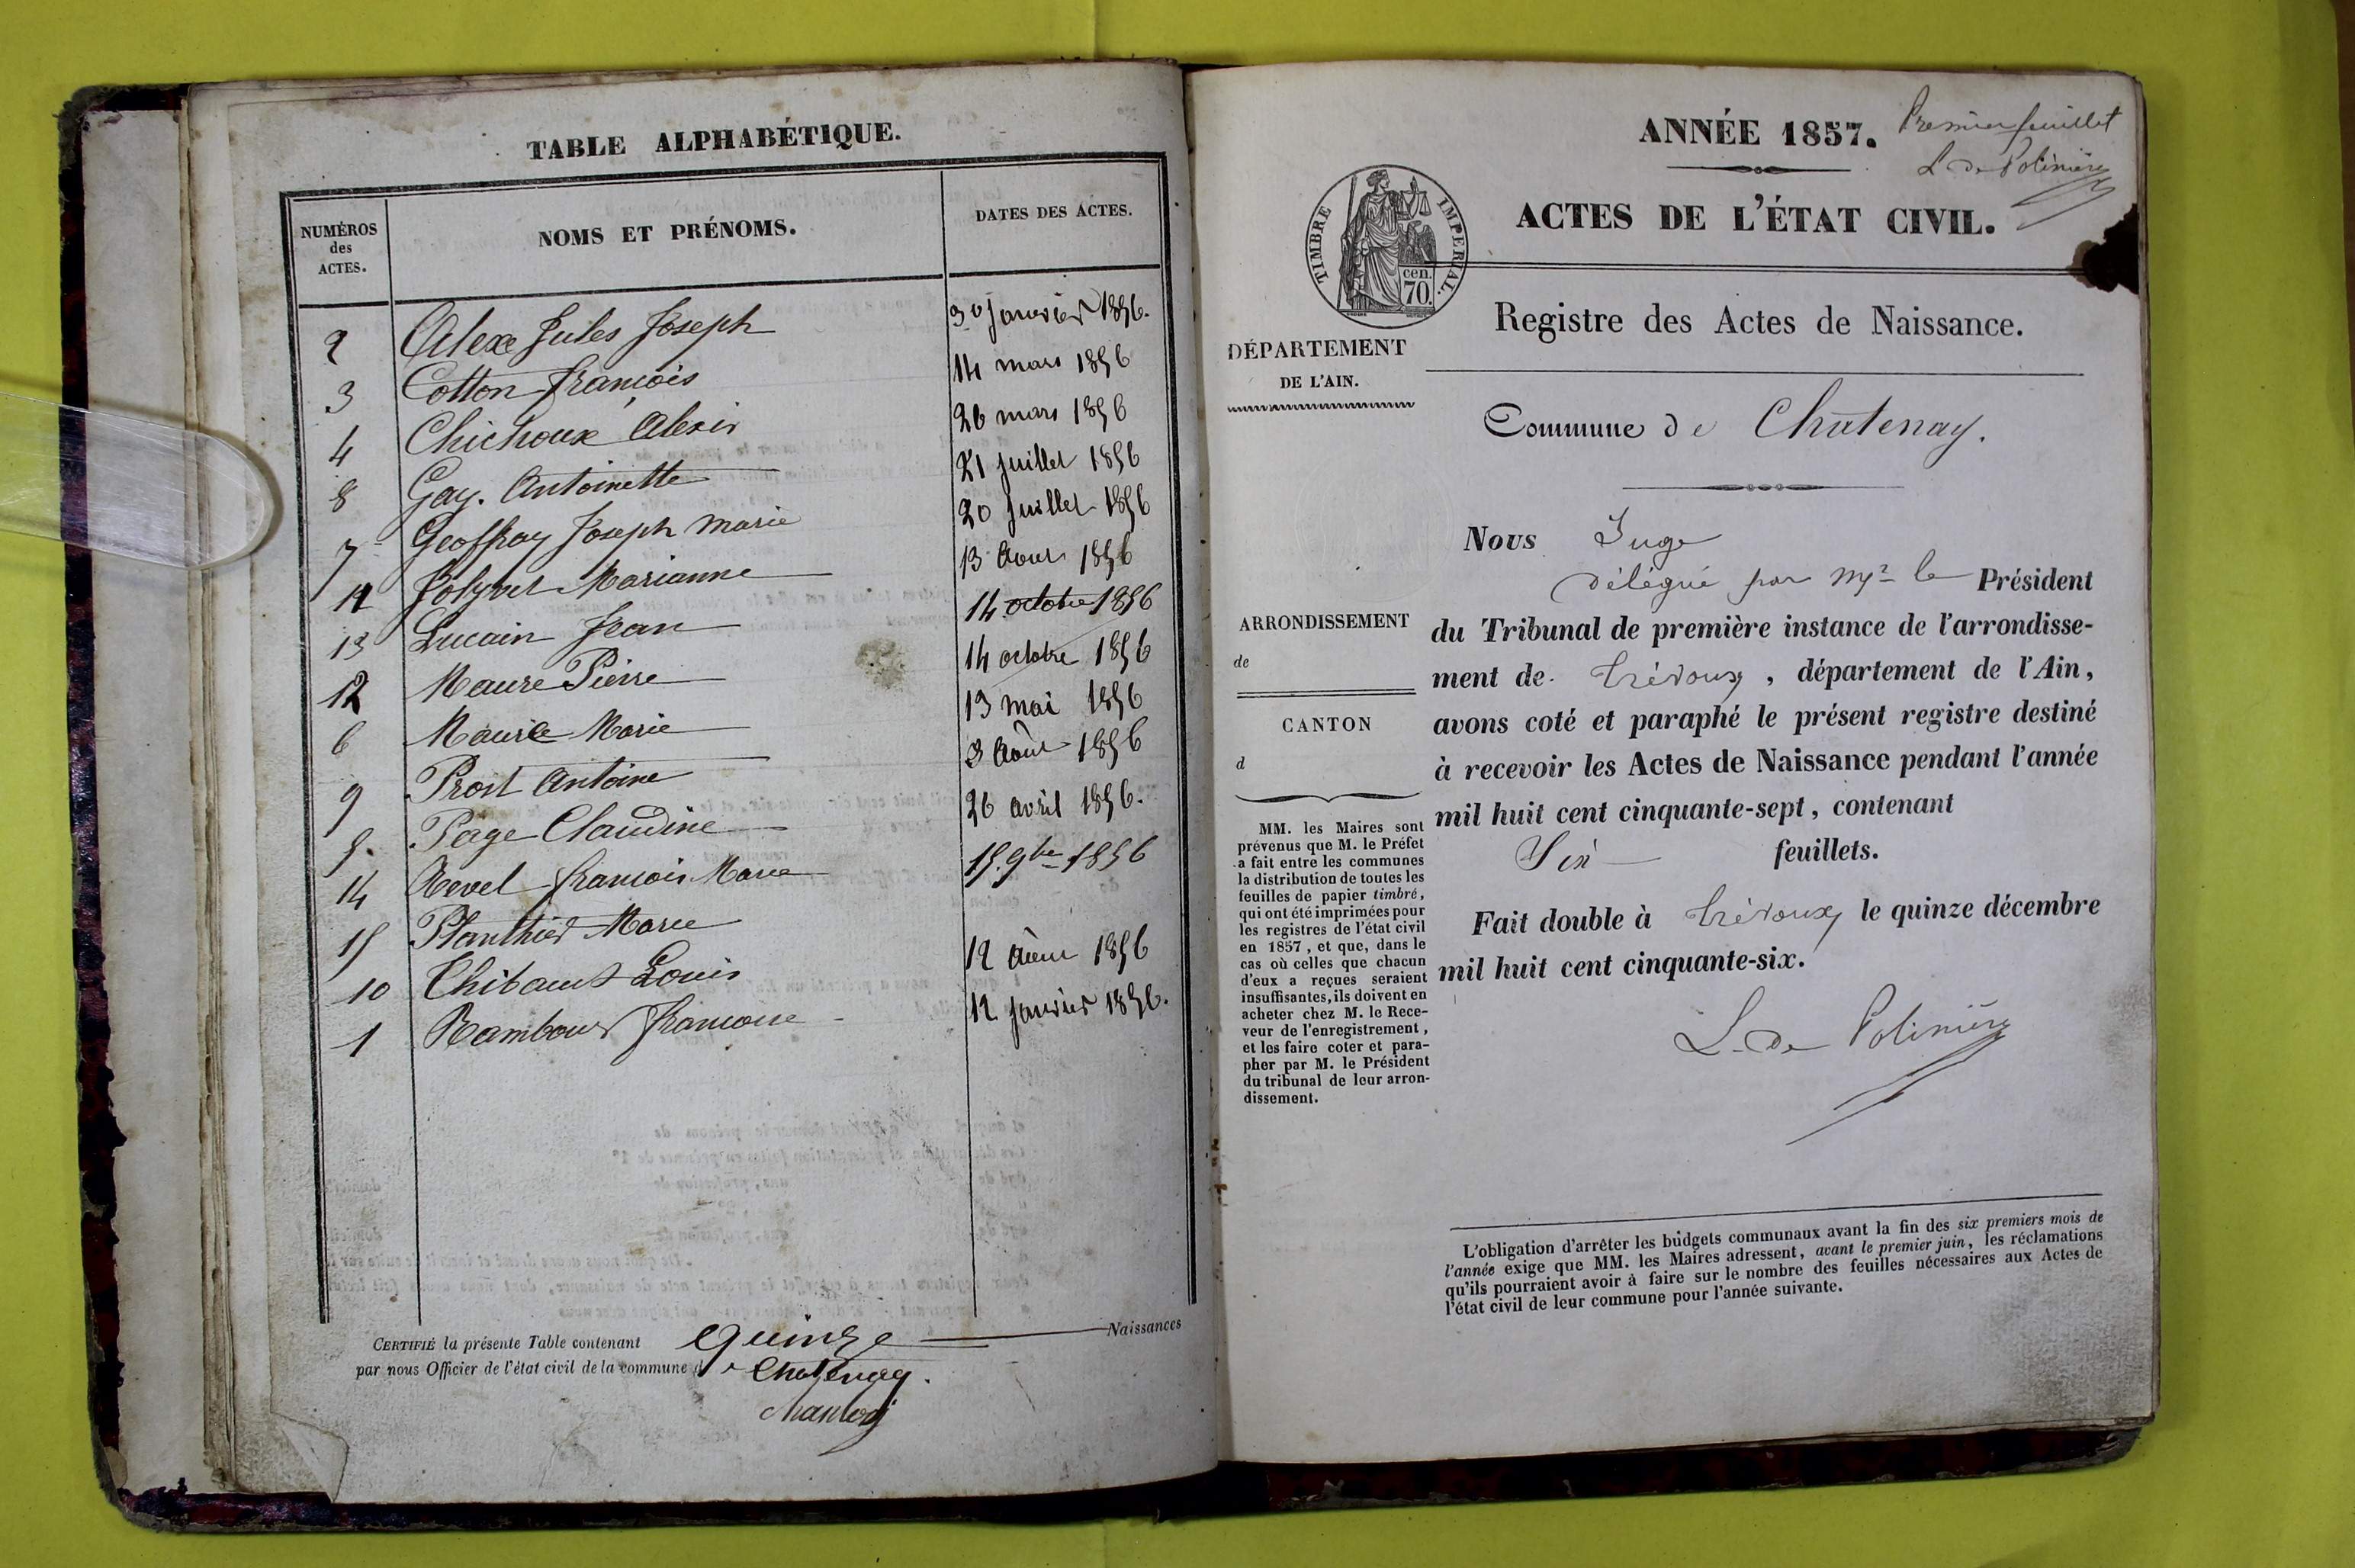 TABLE ALPHABÉTIQUE.
NUMÉROS des ACTES. NOMS ET PRÉNOMS. DATES DES ACTES.
2 Alex Jules Joseph 30 janvier 1856.
3 Cotton françois 14 mars 1856
4 Chichoux Alexis 26 mars 1856
8 Gay. Antoinette 21 juillet 1856
7 Geoffray Joseph Marie 20 juillet 1856
11 Marianne 13 Aout 1856
13 Lucain Jean 14 octobre 1856
12 Maure Pierre 14 octobre 1856
6 Maurice Marie 13 mai 1856
9 Prost Antoine 3 Août 1856
5. Page Claudine 26 avril 1856.
14 Revel françois Marie 15. 9bre 1856
15 Planthier Marie
10 Thibaut Louis 12 Août 1856
1 Rambour françoise 12 janvier 1856.
CERTIFIÉ la présente Table contenant quinze Naissances
par nous Officier de l'état civil de la commune de Chatenay.
ANNÉE 1857.
Premier feuillet
L. de Polinière
ACTES DE L'ÉTAT CIVIL.
TIMBRE IMPERIAL.
cen.
70.
Registre des Actes de Naissance.
DÉPARTEMENT
DE L'AIN.
Commune de Châtenay.
Nous Juge
délégué par Mr le Président
du Tribunal de première instance de l'arrondisse-
ment de Trévoux, département de l'Ain,
avons coté et paraphé le présent registre destiné
à recevoir les Actes de Naissance pendant l'année
mil huit cent cinquante-sept, contenant
Six feuillets.
Fait double à Trévoux, le quinze décembre
mil huit cent cinquante-six.
L. de Polinière
ARRONDISSEMENT
de
CANTON
d
MM. les Maires sont
prévenus que M. le Préfet
a fait entre les communes
la distribution de toutes les
feuilles de papier timbré,
qui ont été imprimées pour
les registres de l'état civil
en 1857, et que, dans le
cas où celles que chacun
d'eux a reçues seraient
insuffisantes, ils doivent en
acheter chez M. le Rece-
veur de l'enregistrement,
et les faire coter et para-
pher par M. le Président
du tribunal de leur arron-
dissement.
L'obligation d'arrêter les budgets communaux avant la fin des six premiers mois de
l'année exige que MM. les Maires adressent, avant le premier juin, les réclamations
qu'ils pourraient avoir à faire sur le nombre des feuilles nécessaires aux Actes de
l'état civil de leur commune pour l'année suivante.